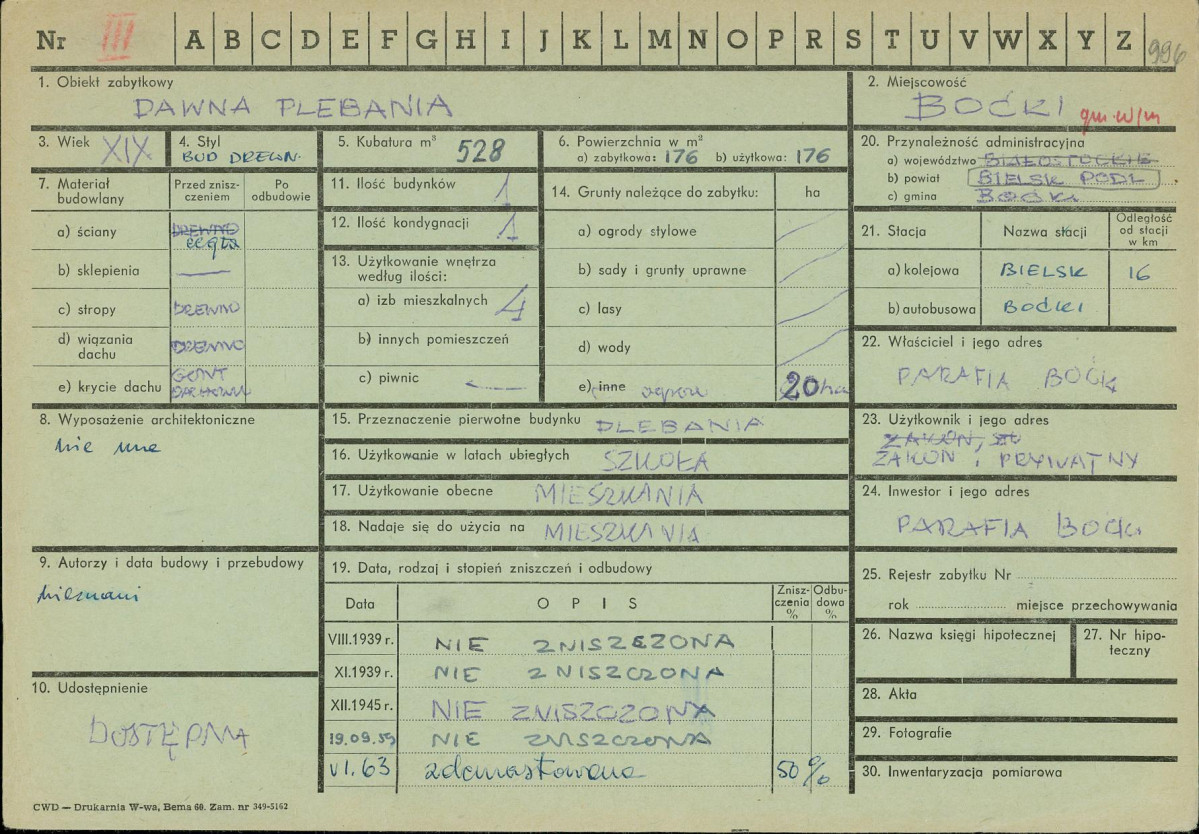 Nr III A B C D E F G H I J K L M N O P R S T U V W X Y Z 996
1. Obiekt zabytkowy
DAWNA PLEBANIA
2. Miejscowość
BOĆKI gm.w/m
3. Wiek XIX
4. Styl
BUD DREWN.
5. Kubatura m³ 528
6. Powierzchnia w m²
a) zabytkowa: 176 b) użytkowa: 176
20. Przynależność administracyjna
a) województwo BIAŁOSTOCKIE
b) powiat BIELSK PODL
c) gmina BOĆKI
7. Materiał budowlany
Przed zniszczeniem
Po odbudowie
a) ściany DREWNO
cegła
b) sklepienia —
c) stropy DREWNO
d) wiązania dachu DREWNO
e) krycie dachu GONT
DACHÓWKA
11. Ilość budynków 1
12. Ilość kondygnacji 1
13. Użytkowanie wnętrza
według ilości:
a) izb mieszkalnych 4
b) innych pomieszczeń
c) piwnic —
14. Grunty należące do zabytku: ha
a) ogrody stylowe
b) sady i grunty uprawne
c) lasy
d) wody
e) inne 20 ha
21. Stacja Nazwa stacji Odległość od stacji w km
a) kolejowa BIELSK 16
b) autobusowa BOĆKI
22. Właściciel i jego adres
PARAFIA BOĆK
8. Wyposażenie architektoniczne
nie ma
15. Przeznaczenie pierwotne budynku PLEBANIA
16. Użytkowanie w latach ubiegłych SZKOŁA
17. Użytkowanie obecne MIESZKANIA
18. Nadaje się do użycia na MIESZKANIA
23. Użytkownik i jego adres
ZAKON,
ZAKON i PRYWATNY
24. Inwestor i jego adres
PARAFIA BOĆKI
9. Autorzy i data budowy i przebudowy
nieznani
19. Data, rodzaj i stopień zniszczeń i odbudowy
Data OPIS Zniszczenia % Odbudowa %
VIII.1939 r. NIE ZNISZCZONA
XI.1939 r. NIE ZNISZCZONA
XII.1945 r. NIE ZNISZCZONA
19.09.59 NIE ZNISZCZONA
VI.63 zdewastowana 50 %
25. Rejestr zabytku Nr
rok miejsce przechowywania
26. Nazwa księgi hipotecznej
27. Nr hipoteczny
10. Udostępnienie
DOSTĘPNA
28. Akta
29. Fotografie
30. Inwentaryzacja pomiarowa
CWD — Drukarnia W-wa, Bema 60. Zam. nr 349-5162